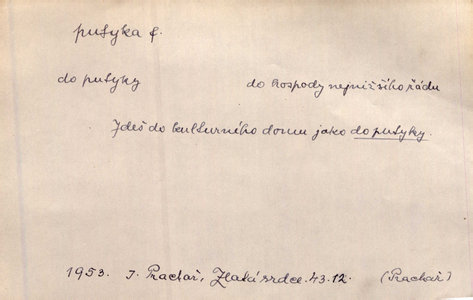 putyka f.
do putyky do hospody nejnižšího řádu
Jdeš do kulturního domu jako do putyky.
1953. I. Prachař, Zlatá srdce. 43.12. (Prachař)